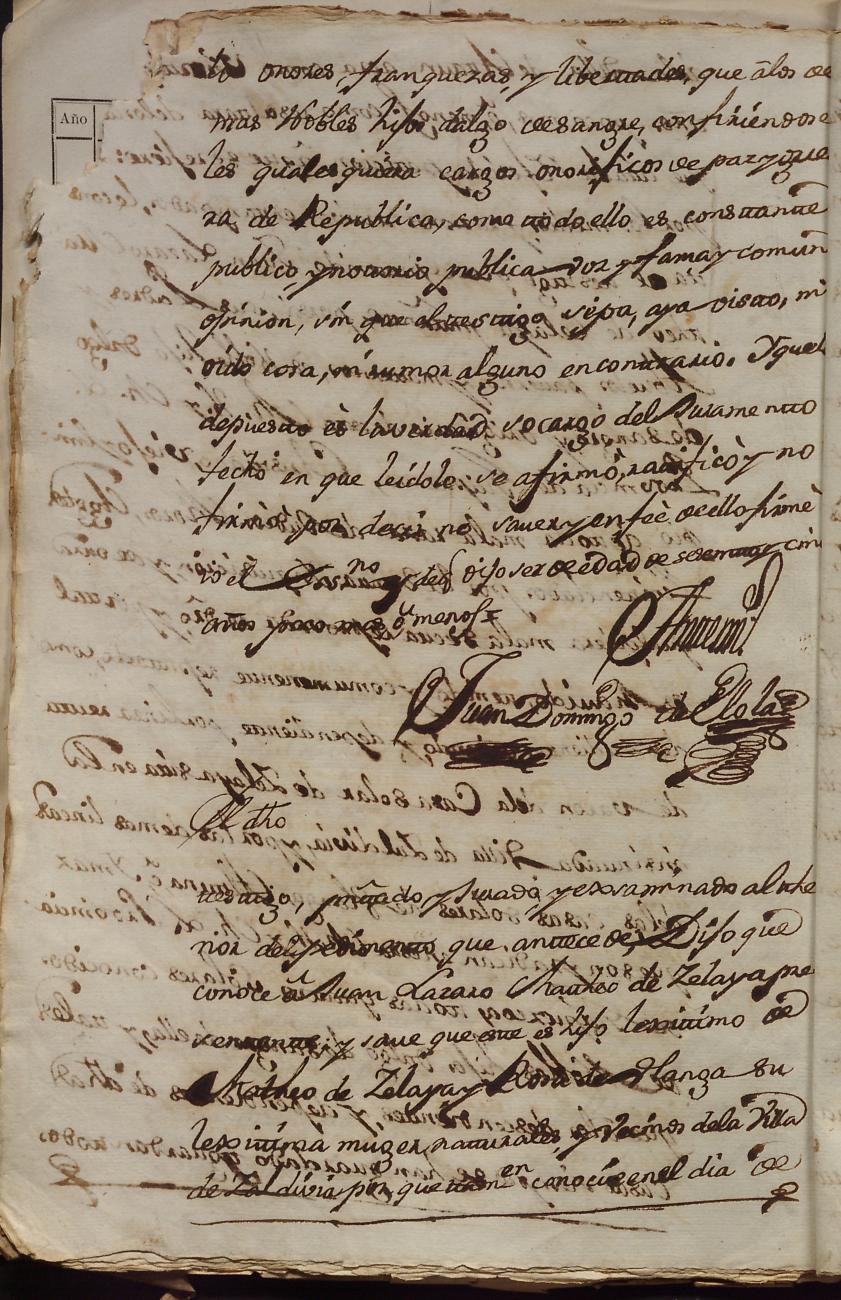 Año
onores, franquezas, y libertades, que álos de
mas Nobles hijos dalgo de sangre, confiriendose
les qualesquiera cargos onorificos de paz y gue
rra de Republica, como todo ello es constante
publico, y notorio publica voz y fama y comun
opinion, sin que el testigo sepa, aya visto, ni
oido cosa, ni rumor alguno en contrario. Y que lo
depuesto es la verdad so cargo del Juramento
fecho en que leidole, se afirmó, ratificó y no
firmó por decir no saver, y en feè de ello firmè
yo el Ess.no y dho dijo ser de edad de setenta y cin
años poco mas ô menos
Juan Domingo de Elola
El dho
testigo, pñtado y Jurado y exsaminado al the
nor del pedimento que antecede, Dijo que
conoce â Juan Lazaro Matheo de Zelaya pre
sentante, y save que este es hijo lexitimo de
Matheo de Zelaya y Rosa de Olanga su
lexitima muger, naturales, y vecinos dela Villa
de Zaldivia por que tambien conocio en el dia de